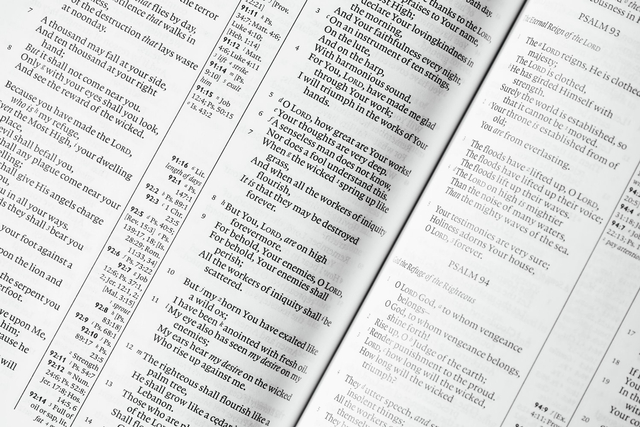 the terror
that flies by day,
pestilence that walks in
of the destruction that lays waste
at noonday.
7 A thousand may fall at your side,
And ten thousand at your right
hand;
But it shall not come near you.
8 Only with your eyes shall you look,
And see the reward of the wicked.
Because you have made the LORD,
who is my refuge,
the Most High, your dwelling
place,
evil shall befall you,
any plague come near your
shall give His angels charge
in all your ways.
they shall bear you
your foot against a
upon the lion and
the serpent you
love upon Me,
him;
because he
will
91:11
34:7; Matt. 4:6;
Luke 4:10
[Heb. 1:14]
91:12 Matt. 4:6;
Luke 4:11
91:15 Job
12:4; Ps. 50:15
Is. 43:2
91:16 Lit.
length of days
92:1 Ps.
147:1
92:3 1 Chr.
23:5
92:5 Ps. 40:5;
[Rev. 15:3] Ps.
139:17, 18; [Is.
28:29; Rom.
11:33, 34]
92:6 Ps. 73:22
92:7 Job
12:6; Ps. 37:1,
2; Jer. 12:1, 2;
[Mal. 3:15]
92:8 [Ps.
83:18]
92:9 Ps. 68:1
92:10 Ps.
89:17 Ps.
23:5
92:11 Ps. 54:7
92:12 Num.
24:6; Ps. 52:8;
Jer. 17:8; Hos.
14:5, 6
92:14 Full of
oil or sap, lit.
thanks to the LORD,
praises to Your name,
declare Your lovingkindness in
the morning,
And Your faithfulness every night,
3 On an instrument of ten strings,
On the lute,
And on the harp,
With harmonious sound.
4 For You, LORD, have made me glad
through Your work;
I will triumph in the works of Your
hands.
5 O LORD, how great are Your works!
Your thoughts are very deep.
6 A senseless man does not know,
Nor does a fool understand this.
7 When the wicked spring up like
grass,
And when all the workers of iniquity
flourish,
It is that they may be destroyed
forever.
8 But You, LORD, are on high
forevermore.
9 For behold, Your enemies, O LORD,
For behold, Your enemies shall
perish;
All the workers of iniquity shall be
scattered.
10 But my horn You have exalted like
a wild ox;
I have been anointed with fresh oil.
11 My eye also has seen my desire on my
enemies;
My ears hear my desire on the wicked
Who rise up against me.
12 The righteous shall flourish like a
palm tree,
He shall grow like a cedar in
Lebanon.
13 Those who are
Shall
14
PSALM 93
The Eternal Reign of the LORD
1 The LORD reigns, He is clothed
majesty;
The LORD is clothed,
He has girded Himself with
strength.
Surely the world is established, so
that it cannot be moved.
2 Your throne is established from of
old;
You are from everlasting.
3 The floods have lifted up, O LORD,
The floods have lifted up their voice;
The floods lift up their waves.
4 The LORD on high is mightier
Than the noise of many waters,
Than the mighty waves of the sea.
5 Your testimonies are very sure;
Holiness adorns Your house,
O LORD, forever.
PSALM 94
the Refuge of the Righteous
1 O LORD God, to whom vengeance
belongs—
O God, to whom vengeance belongs,
shine forth!
2 Rise up, O Judge of the earth;
Render punishment to the proud.
3 LORD, how long will the wicked,
How long will the wicked
triumph?
4 They utter speech, and
insolent things;
All the workers of
themselves.
94:9
4:11; Prov.
17
18
19
20